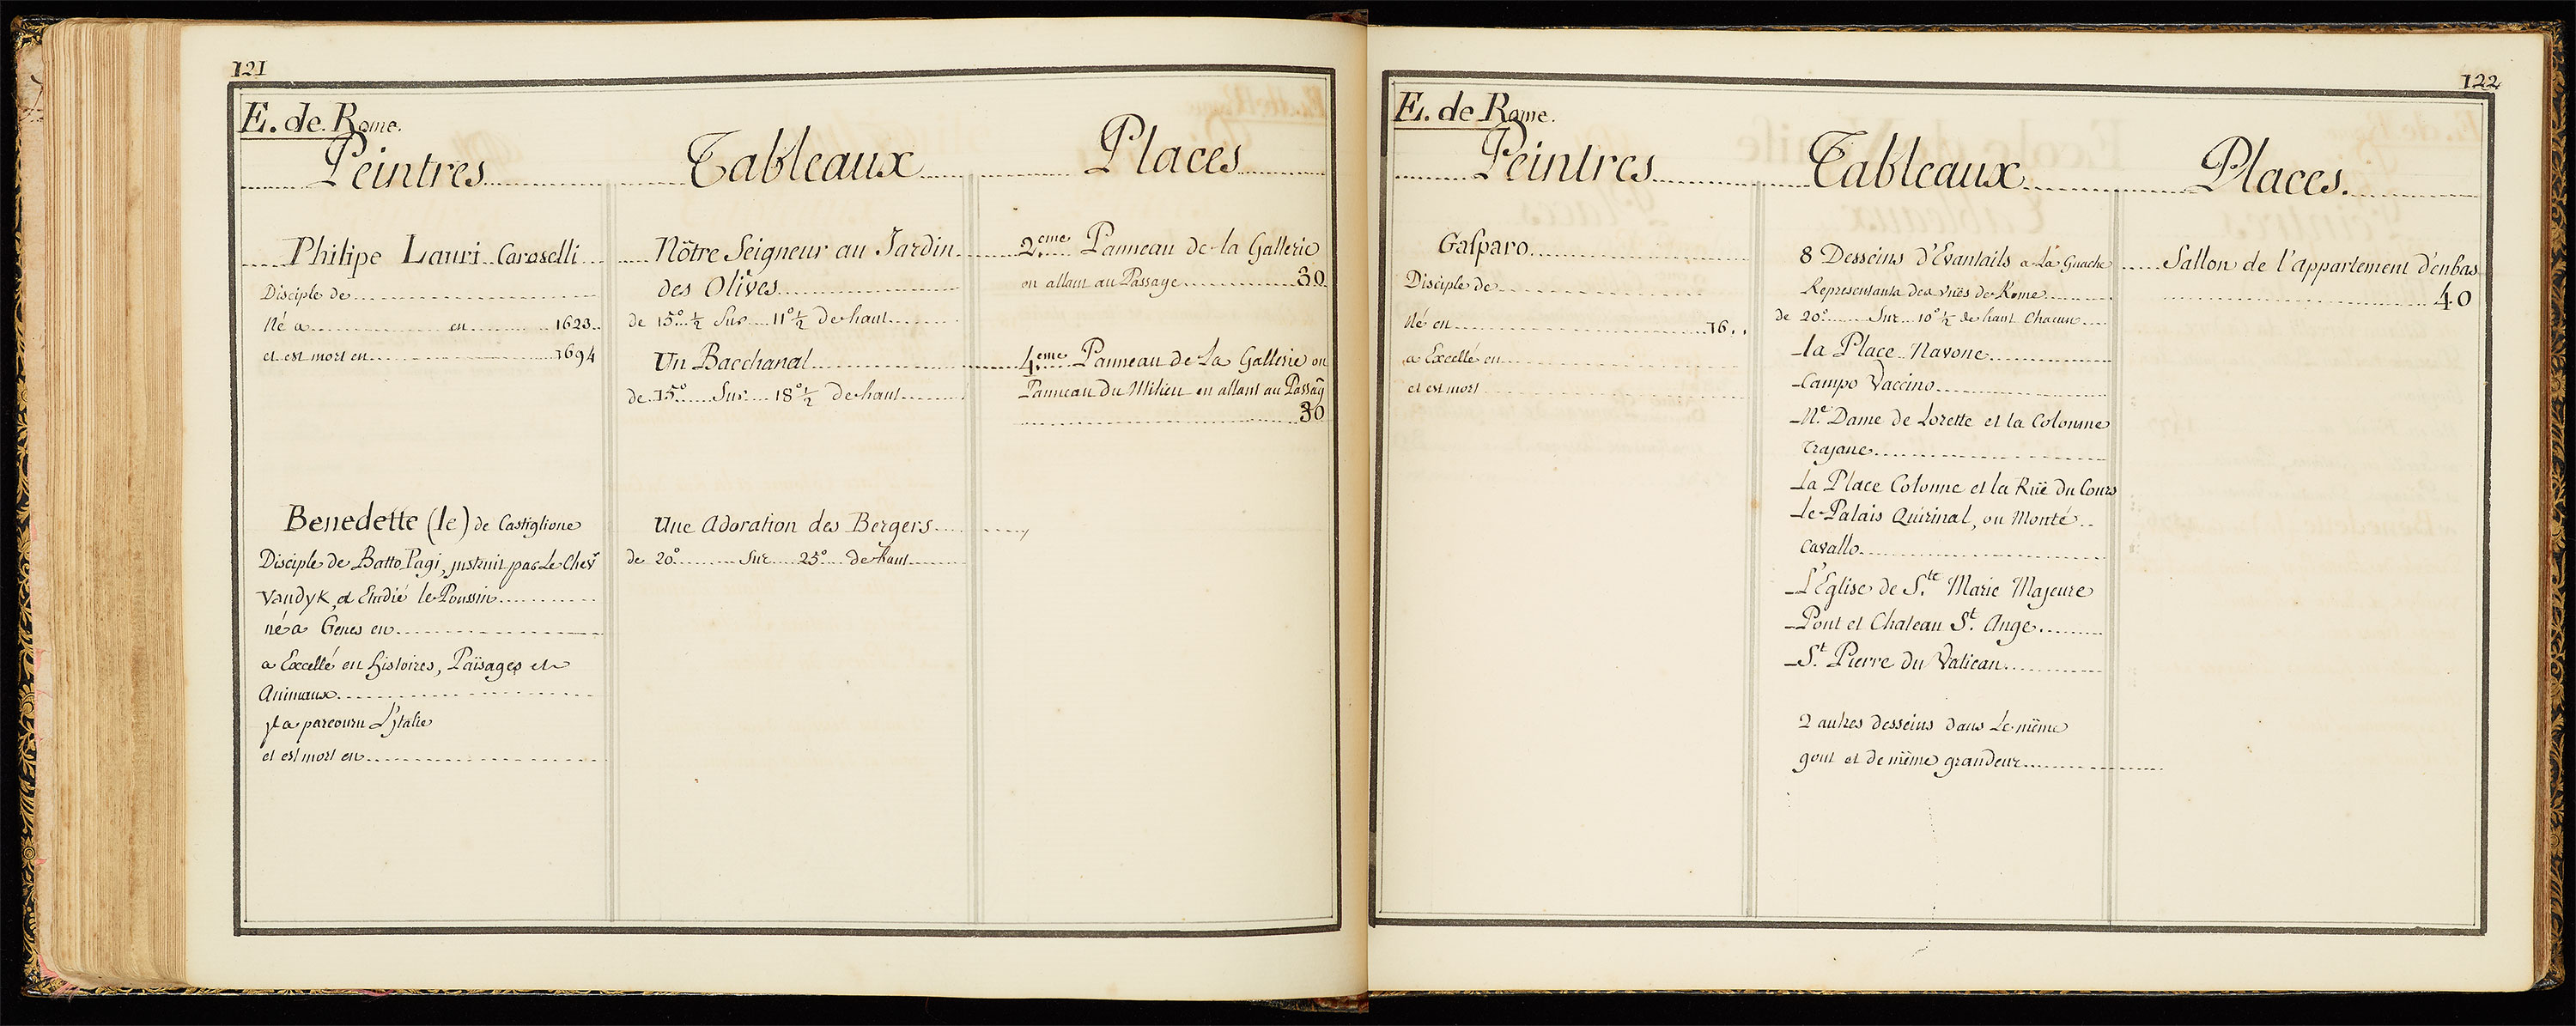 121
E. de Rome.
Peintres
Tableaux
Places
Philipe Lauri Caroselli
Disciple de
Né a en 1623
et est mort en 1694
Nôtre Seigneur au Jardin
des Olives
de 15° ½ Sur 11° ½ de haut
Un Bacchanal
de 15° Sur 18° ½ de haut
2.eme Panneau de la Gallerie
en allant au Passage 30
4.eme Panneau de La Gallerie ou
Panneau du Milieu en allant au Passag
30
Benedette (le) de Castiglione
Disciple de Batto Pagi, jnstruit par Le Chevr
Vandyk, et Etudié le Poussin
né a Genes en
a Excellé en histoires, Païsages et
Animaux
jl a parcouru L'jtalie
et est mort en
Une adoration des Bergers
de 20° Sur 25° de haut
122
E. de Rome.
Peintres
Tableaux
Places.
Gasparo
Disciple de
Né en 16..
a Excellé en
et est mort
8 Desseins d'Evantails a La Guache
Representants des vuës de Rome
de 20° Sur 10° ½ de haut Chacun
-la Place Navone
-Campo Vaccino
-Ne. Dame de Lorette et la Colonne
Trajane
-la Place Colonne et la Ruë du Cours
-le Palais Quirinal, ou Monté
Cavallo
-L'Eglise de S.te Marie Majeure
-Pont et Chateau St. Ange
-St. Pierre du Vatican
2 autres desseins dans Le même
gout et de même grandeur
Sallon de l'appartement d'enbas
40